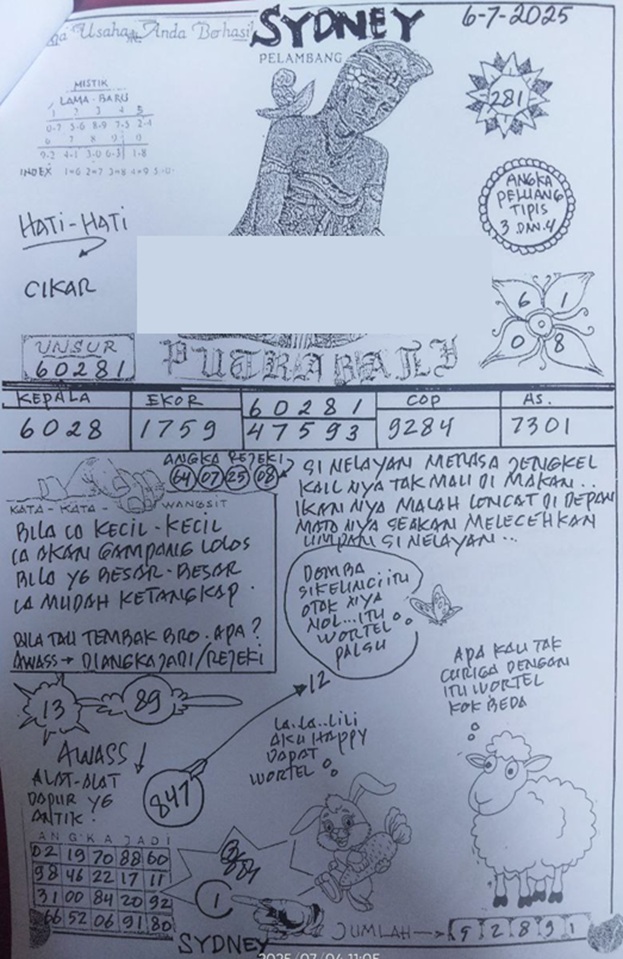 Usaha Anda Berhasil
SYDNEY
6-7-2025
PELAMBANG
MISTIK
LAMA - BARU
1 2 3 4 5
6 7 8 9 0
INDEX 1=6 2=7 3=8 4=9 5=0
281
ANGKA
PELUANG
TIPIS
3 DAN 4
HATI-HATI
CIKAR
6 1
0 8
UNSUR
60281
PUTRA BALI
KEPALA
EKOR
60281
COP
AS.
6028
1759
47593
9284
7301
ANGKA REJEKI
64 07 25 08
KATA - KATA - WANGSIT
BILA CO KECIL - KECIL
IA AKAN GAMPANG LOLOS
BILA YG BESAR - BESAR
IA MUDAH KETANGKAP.
BILA TAU TEMBAK BRO. APA?
AWASS → DIANGKA JADI/REJEKI
SI NELAYAN MERASA JENGKEL
KAIL NYA TAK MAU DI MAKAN..
IKAN NYA MALAH LONCAT DI DEPAN
MATA NYA SEAKAN MELECEHKAN
UMPAN SI NELAYAN..
DOMBA
SIKELINCI ITU
OTAK NYA
NOL...ITU
WORTEL
PALSU
12
13
89
APA KAU TAK
CURIGA DENGAN
ITU WORTEL
KOK BEDA
LA.LA..LILI
AKU HAPPY
DAPAT
WORTEL
AWASS
ALAT-ALAT
DAPUR YG
ANTIK.
847
ANGKA JADI
02 19 70 88 60
98 46 22 17 11
31 00 84 20 92
66 52 06 91 80
1
SYDNEY
JUMLAH → 9 2 8 3 1
2025/07/04 11:05